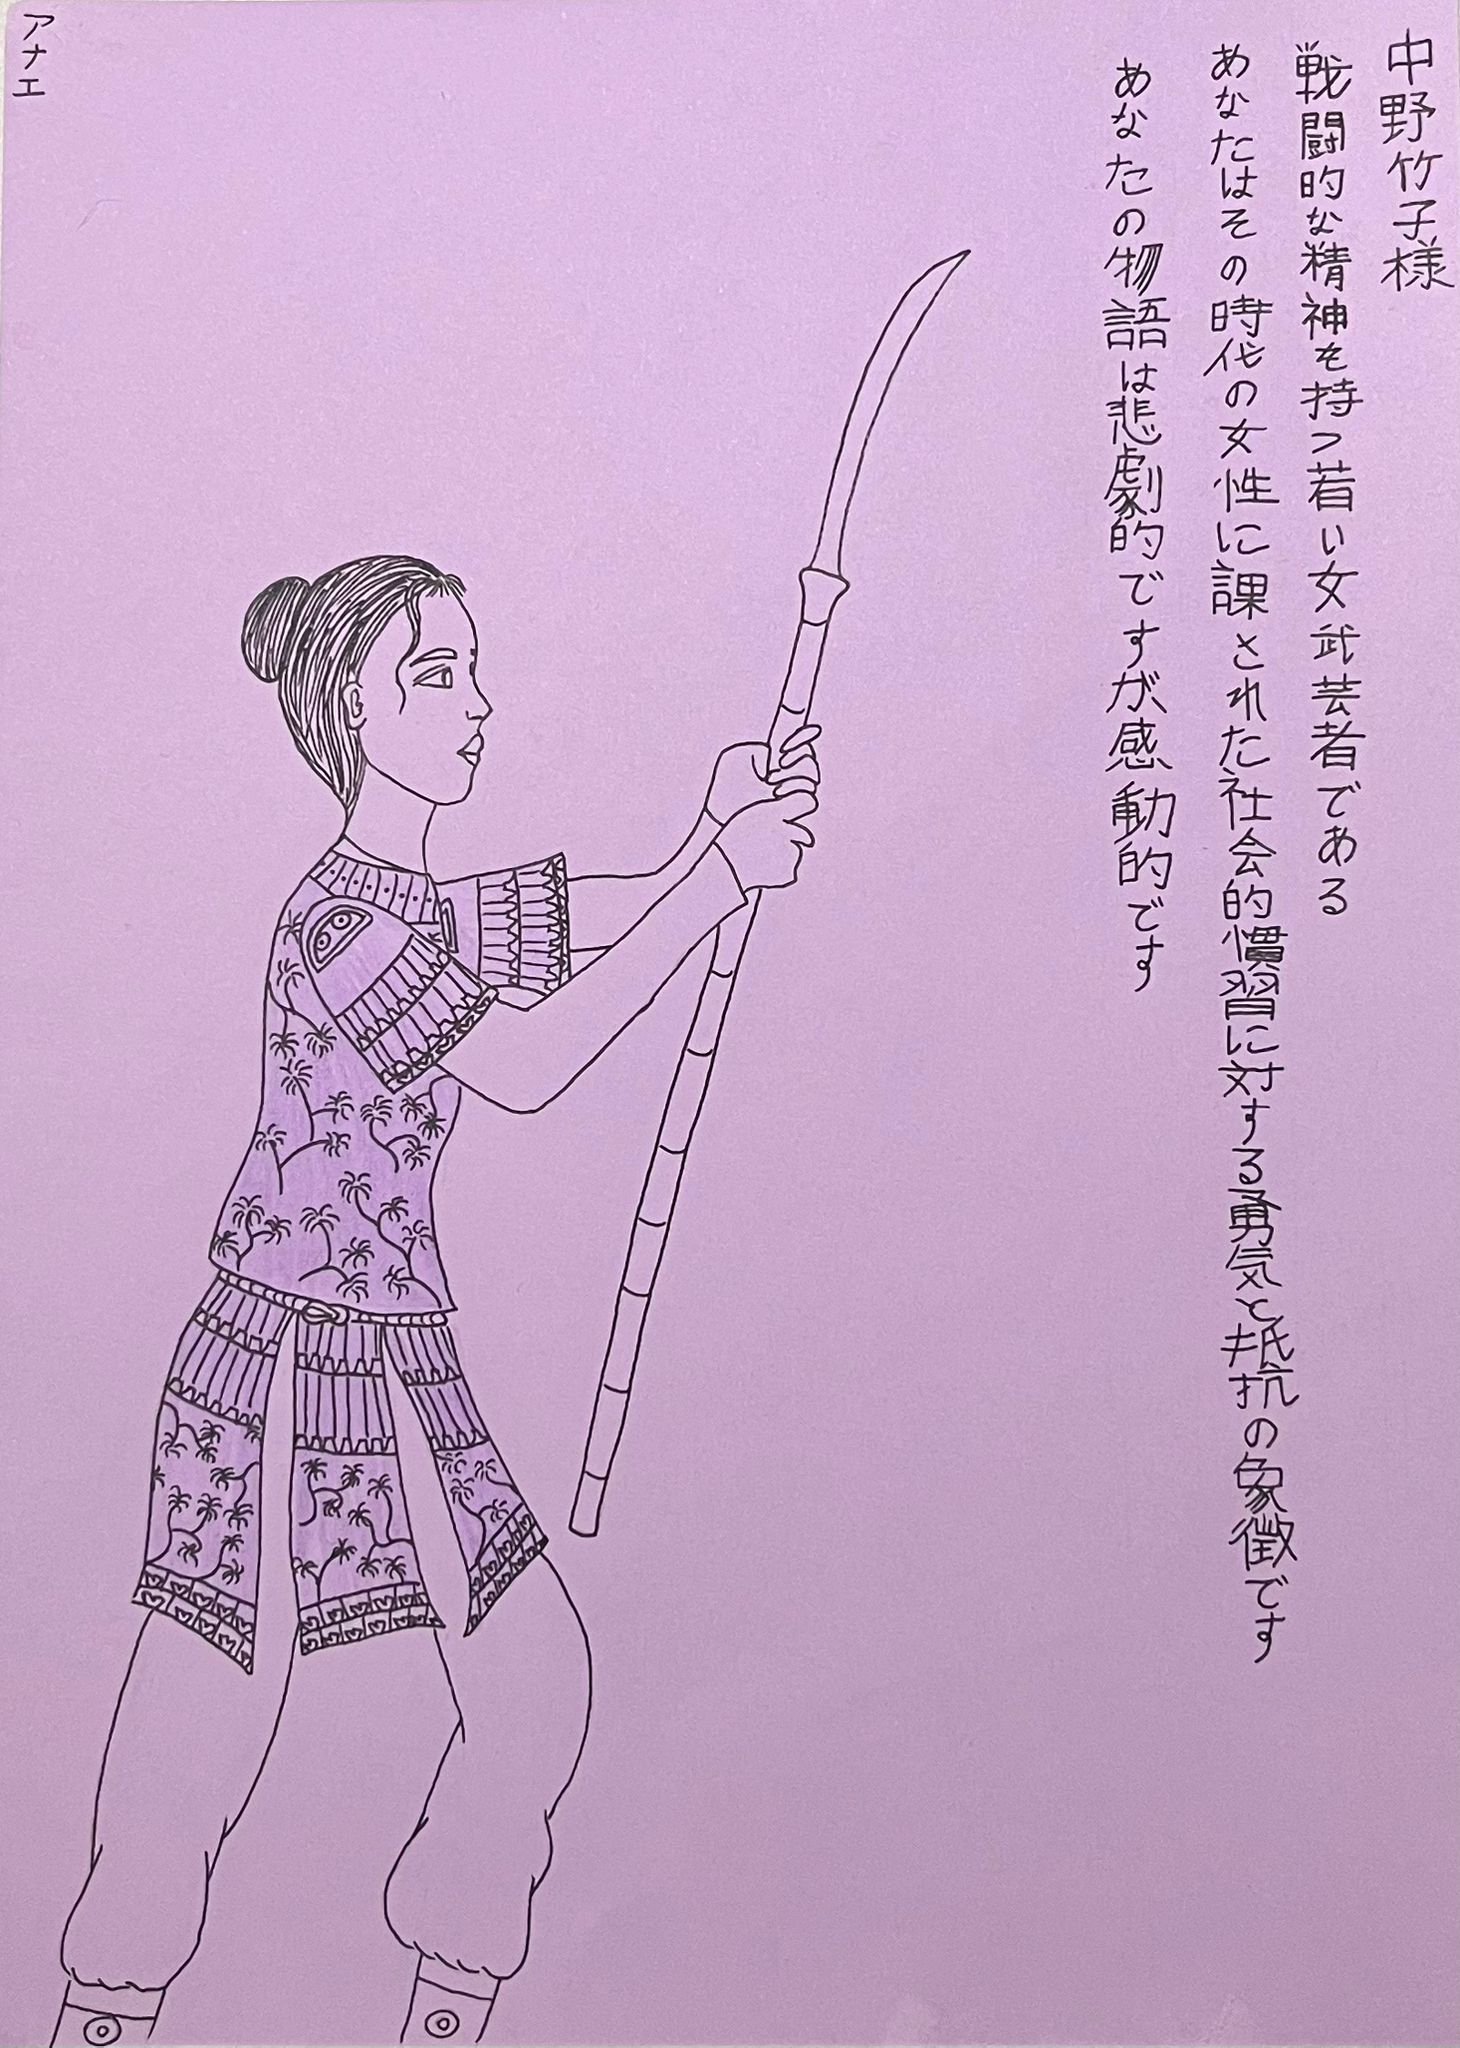 中野竹子様
戦闘的な精神を持つ若い女武芸者である
あなたはその時代の女性に課された社会的慣習に対する勇気と抵抗の象徴です
あなたの物語は悲劇的ですが感動的です
アナエ